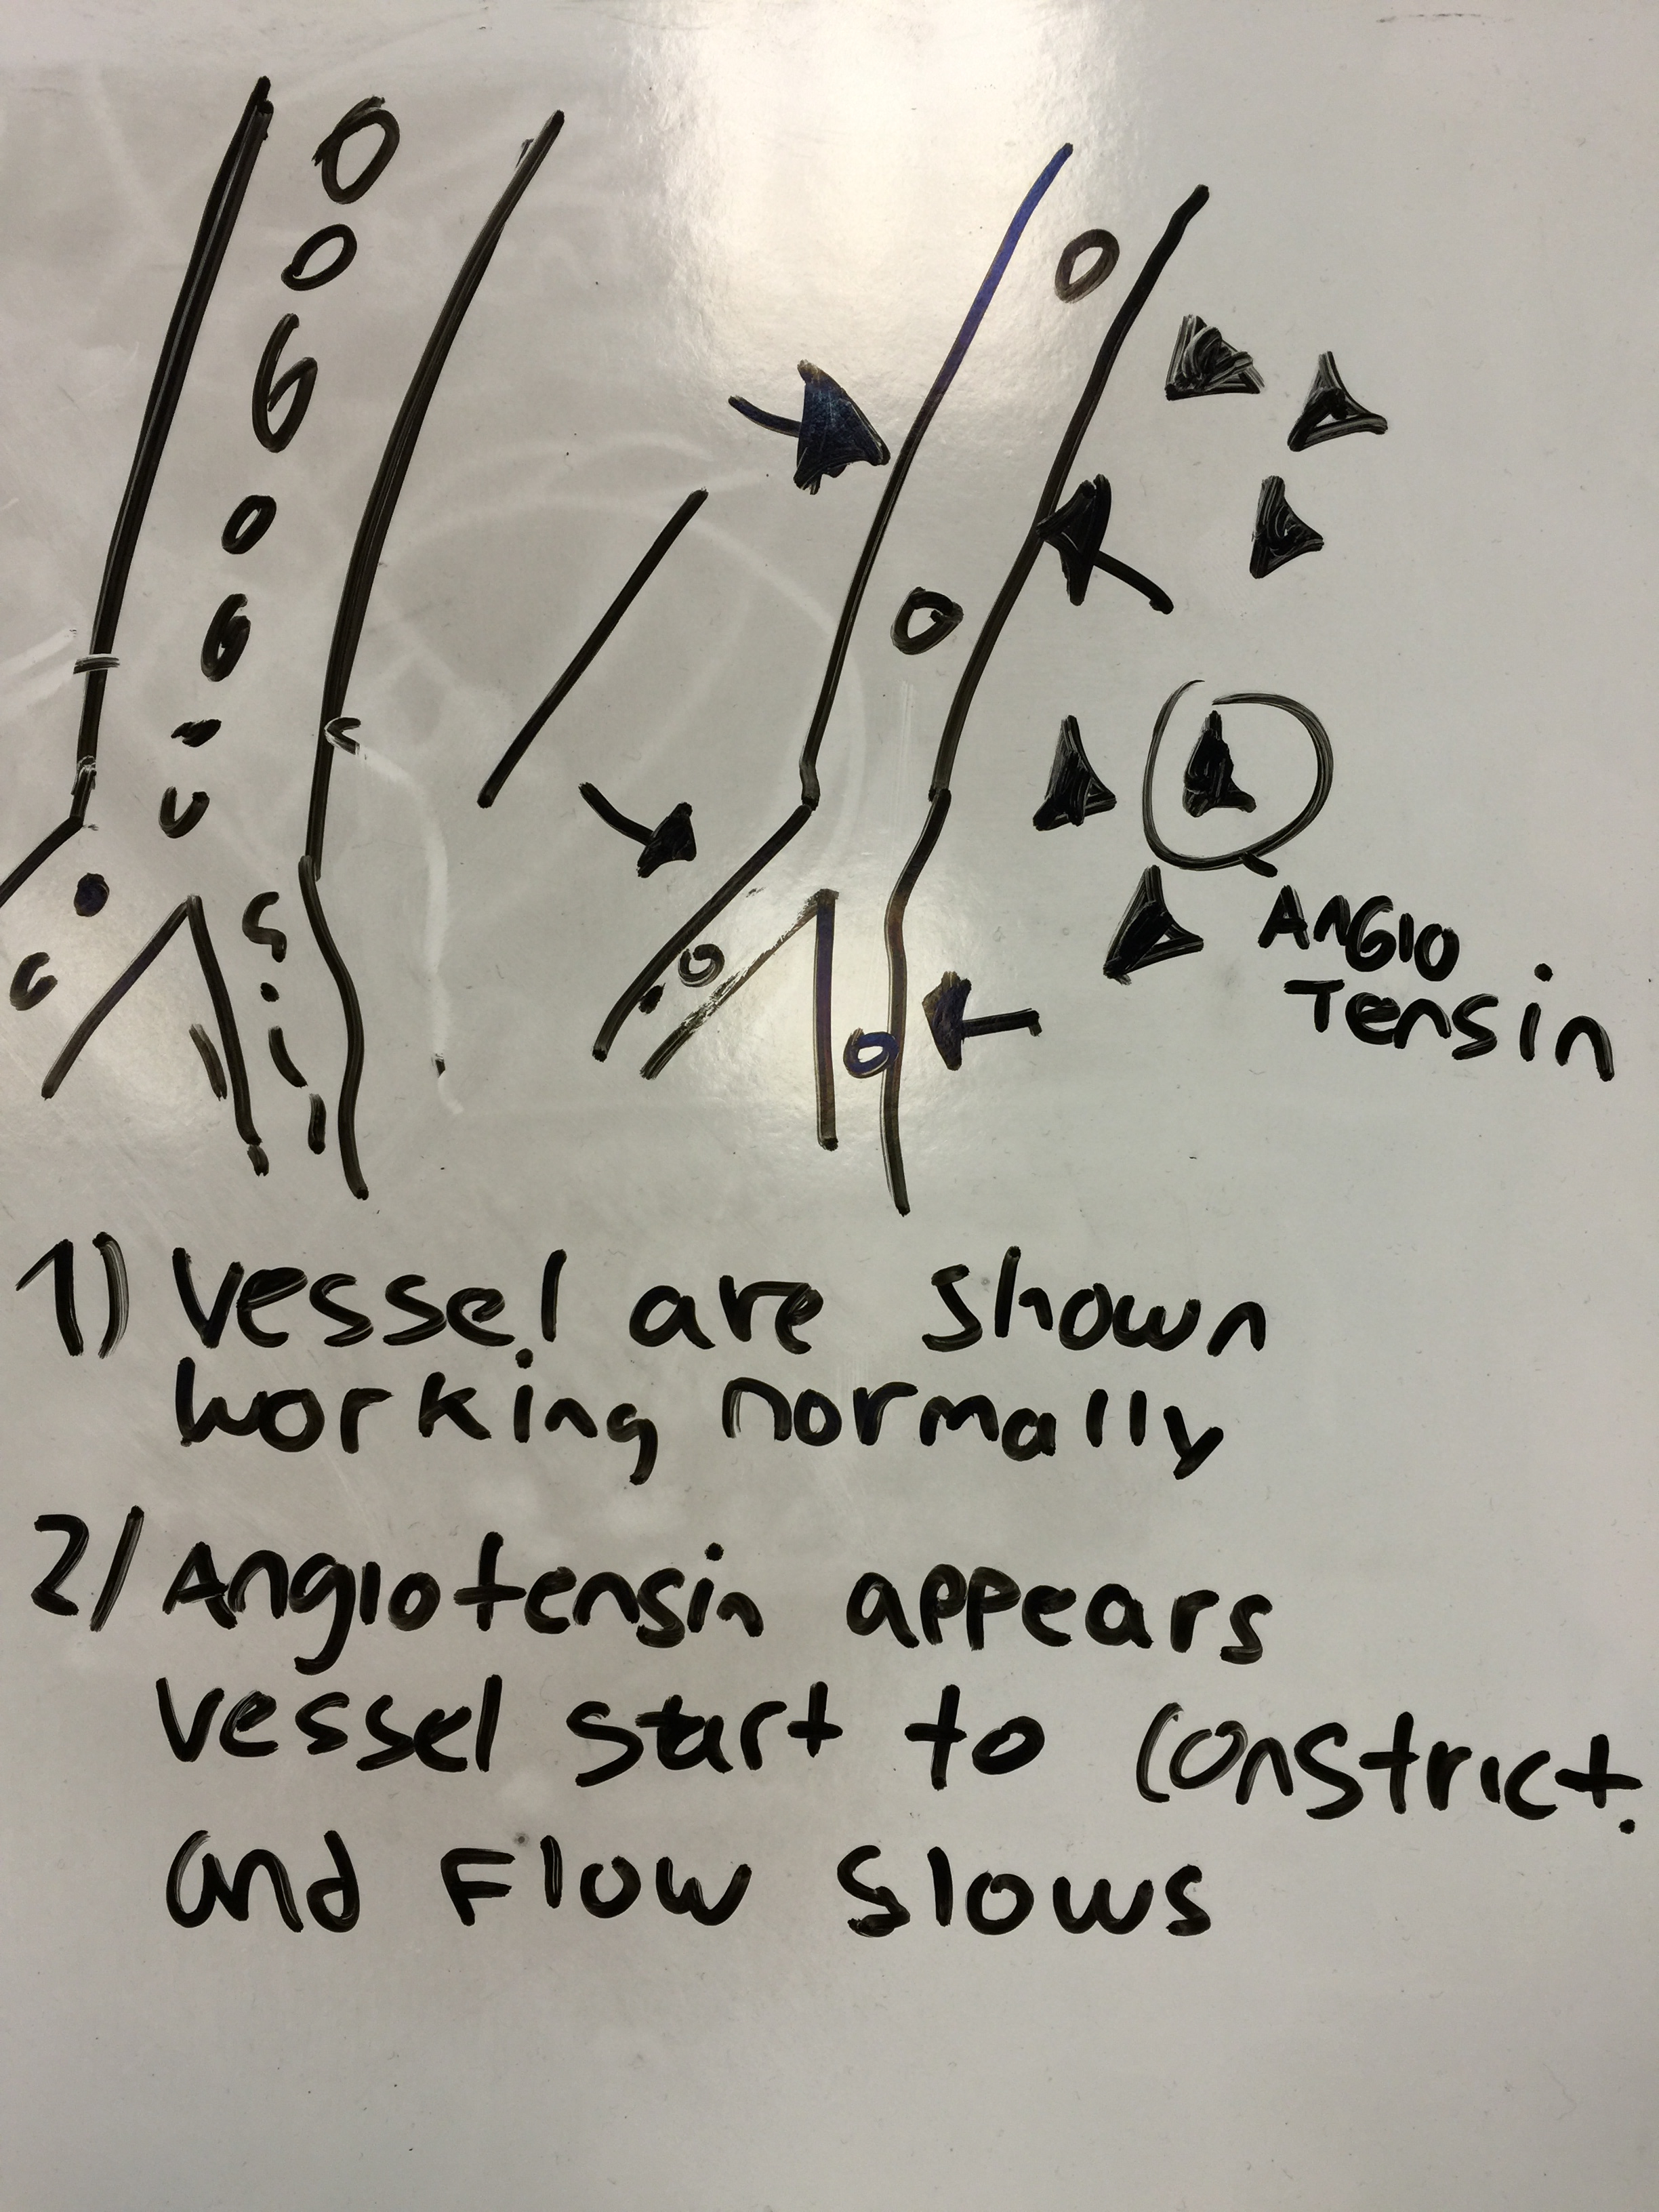 ANGIO
Tensin
1) Vessel are shown
working normally
2) Angiotensin appears
Vessel start to constrict.
and Flow slows